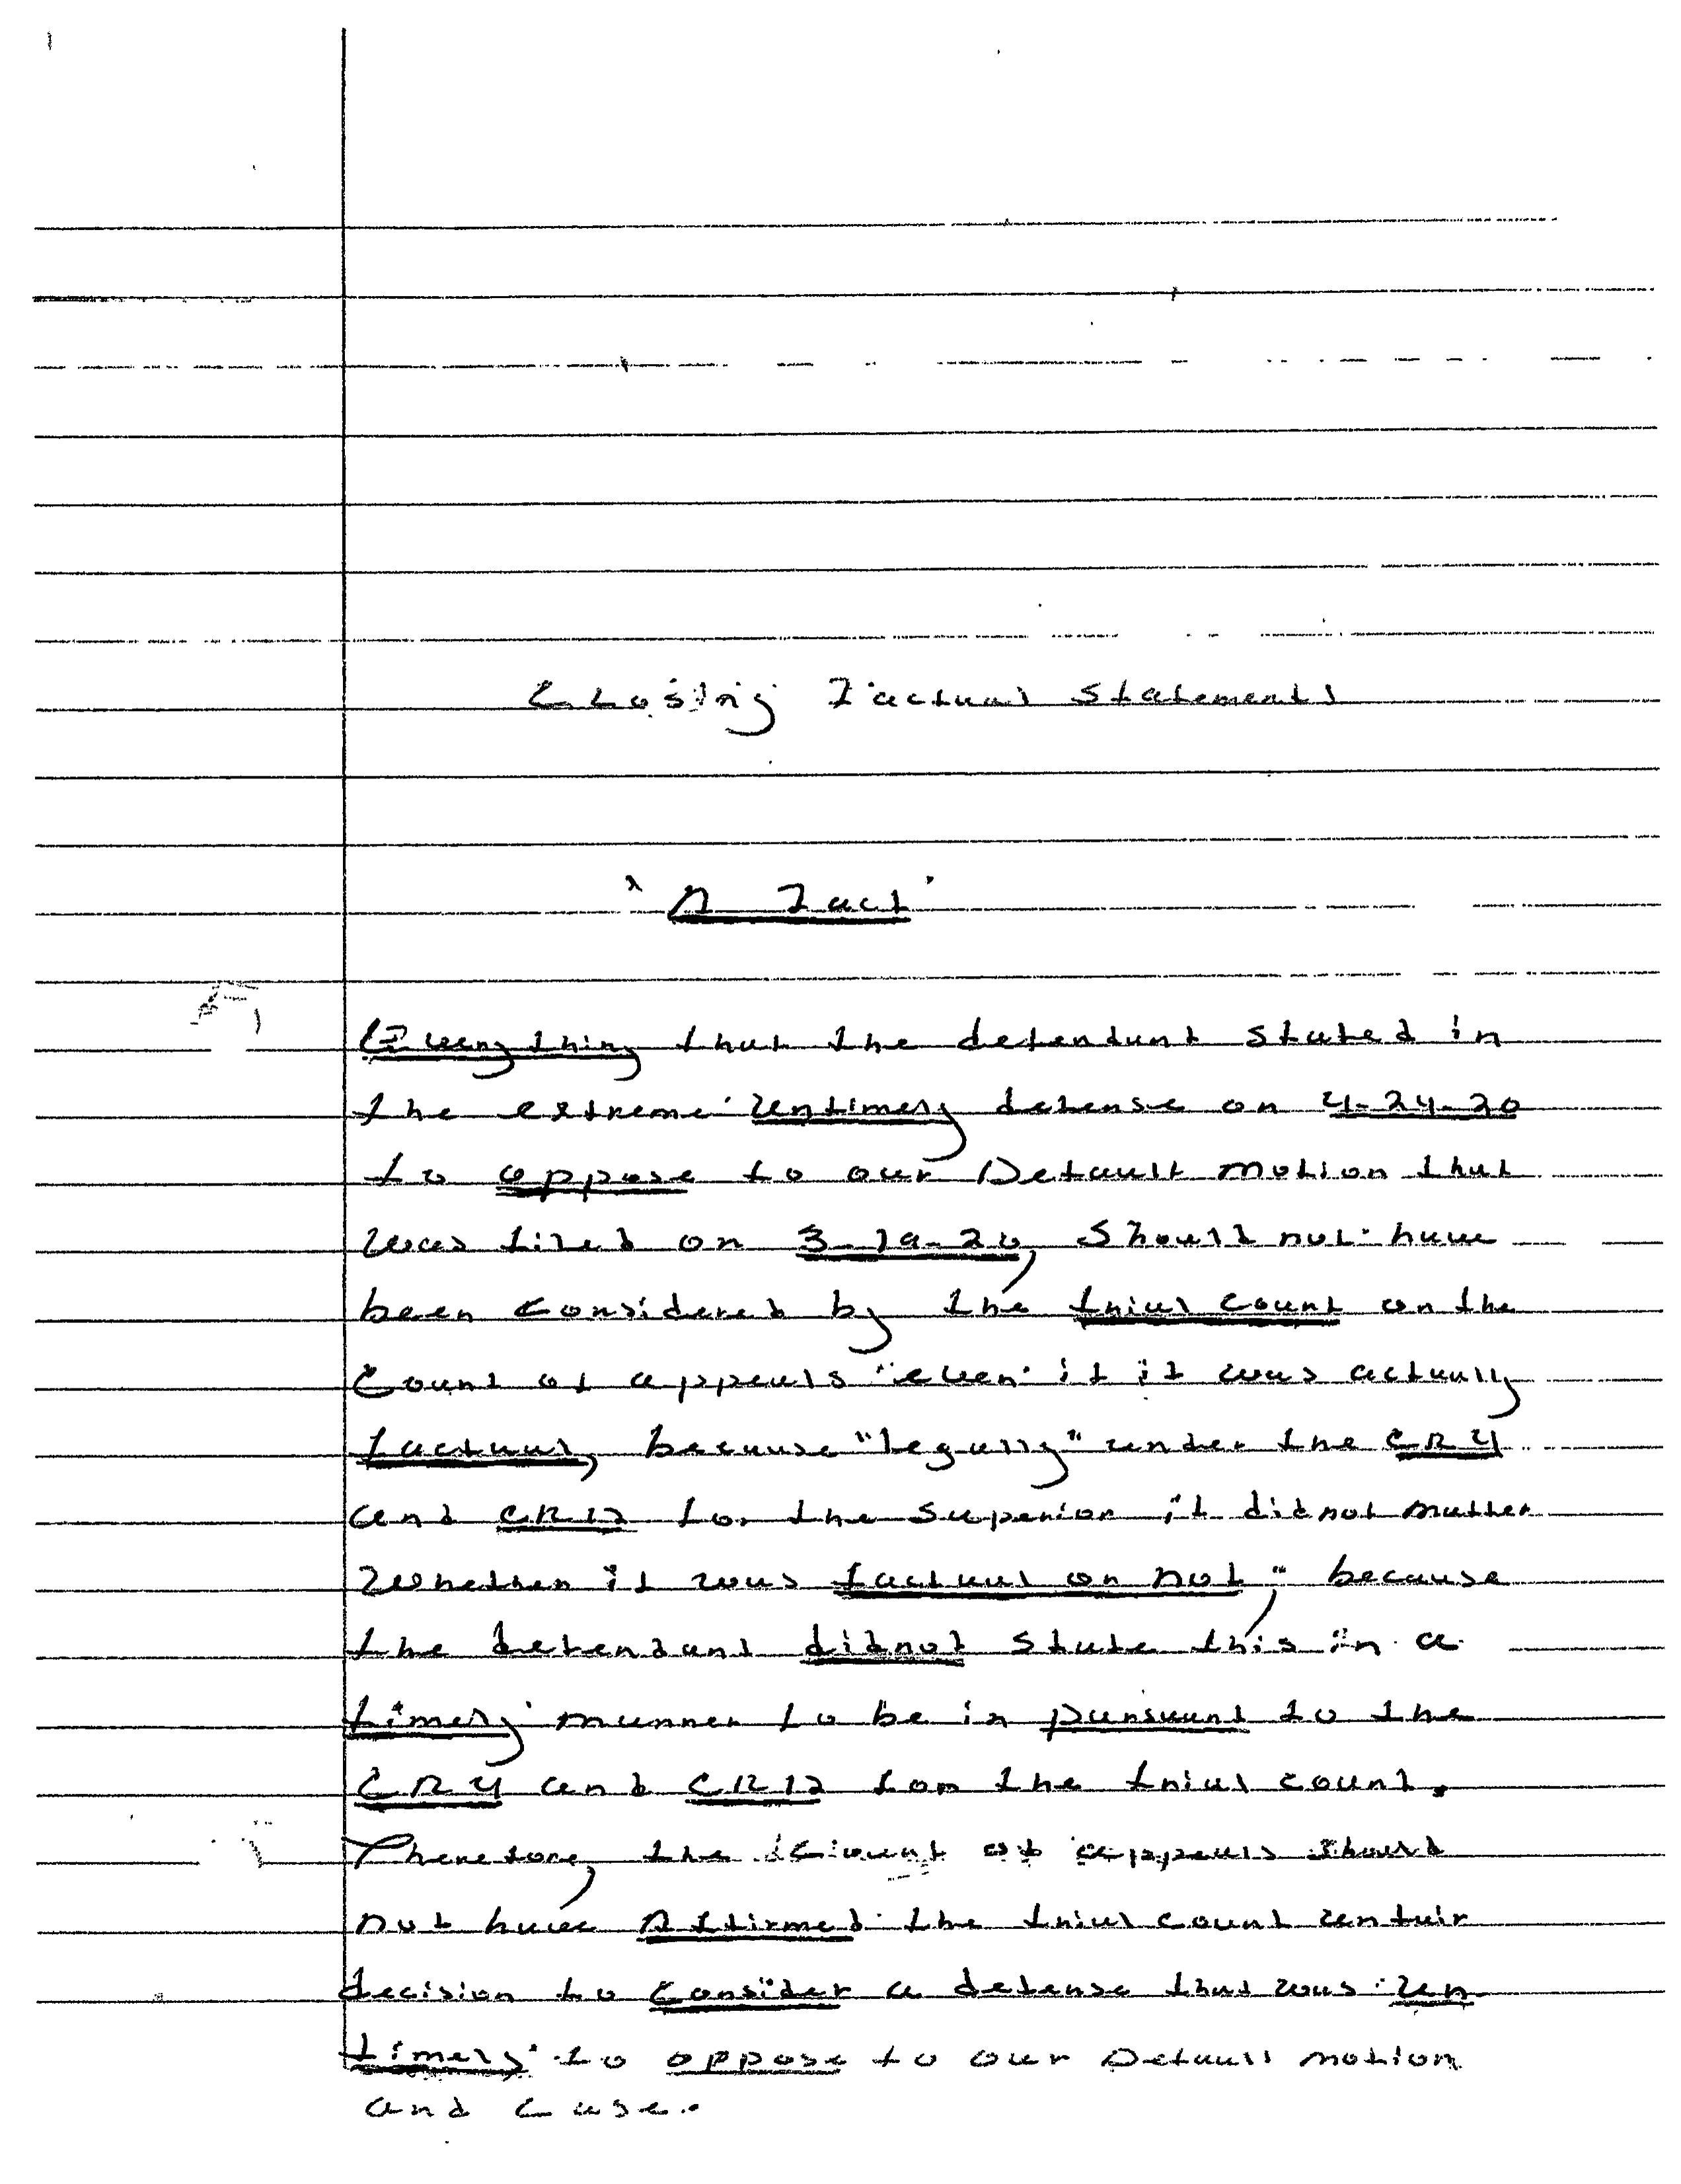 Closing Factual Statements
"A Fact"
Everything that the defendant stated in
the extreme untimely defense on 4-24-20
to oppose to our Default motion that
was filed on 3-19-20, should not have
been considered by the trial court or the
Court of appeals "even" if it was actually
factual, because "legally" under the CR4
and CR12 for the superior it did not matter
Whether it was factual or not; because
the defendant didnot state this in a
timely manner to be in pursuant to the
CR4 and CR12 for the trial court.
Therefore, the Court of appeals should
not have Affirmed the trial court unfair
decision to consider a defense that was un
timely to oppose to our Default motion
and case.